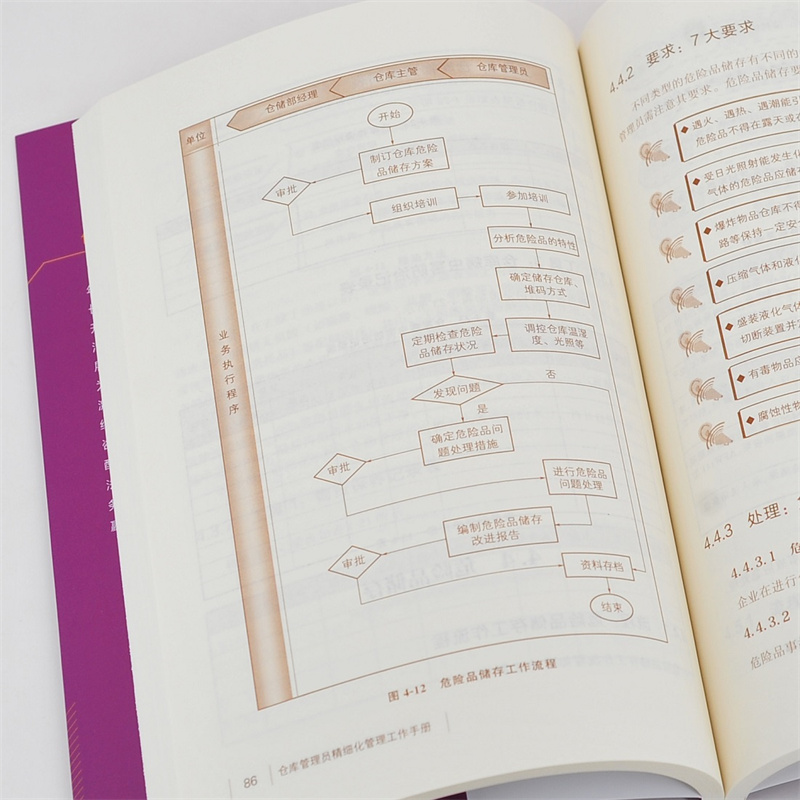 单位
仓储部经理
仓库主管
仓库管理员
业务执行程序
开始
制订仓库危险
品储存方案
审批
组织培训
参加培训
分析危险品的特性
确定储存仓库、
堆码方式
调控仓库温湿
度、光照等
定期检查危险
品储存状况
发现问题
否
是
确定危险品问
题处理措施
审批
进行危险品
问题处理
编制危险品储存
改进报告
审批
资料存档
结束
图 4-12 危险品储存工作流程
86 仓库管理员精细化管理工作手册
4.4.2 要求：7大要求
不同类型的危险品储存有不同的
管理员需注意其要求。危险品储存要
◆ 遇火、遇热、遇潮能引
危险品不得在露天或
◆ 受日光照射能发生化
气体的危险品应储存
◆ 爆炸物品仓库不得
路等保持一定安
◆ 压缩气体和液化
◆ 盛装液化气体
切断装置并
◆ 有毒物品应
◆ 腐蚀性物
4.4.3 处理：
4.4.3.1
企业在进行
4.4.3.2
危险品事